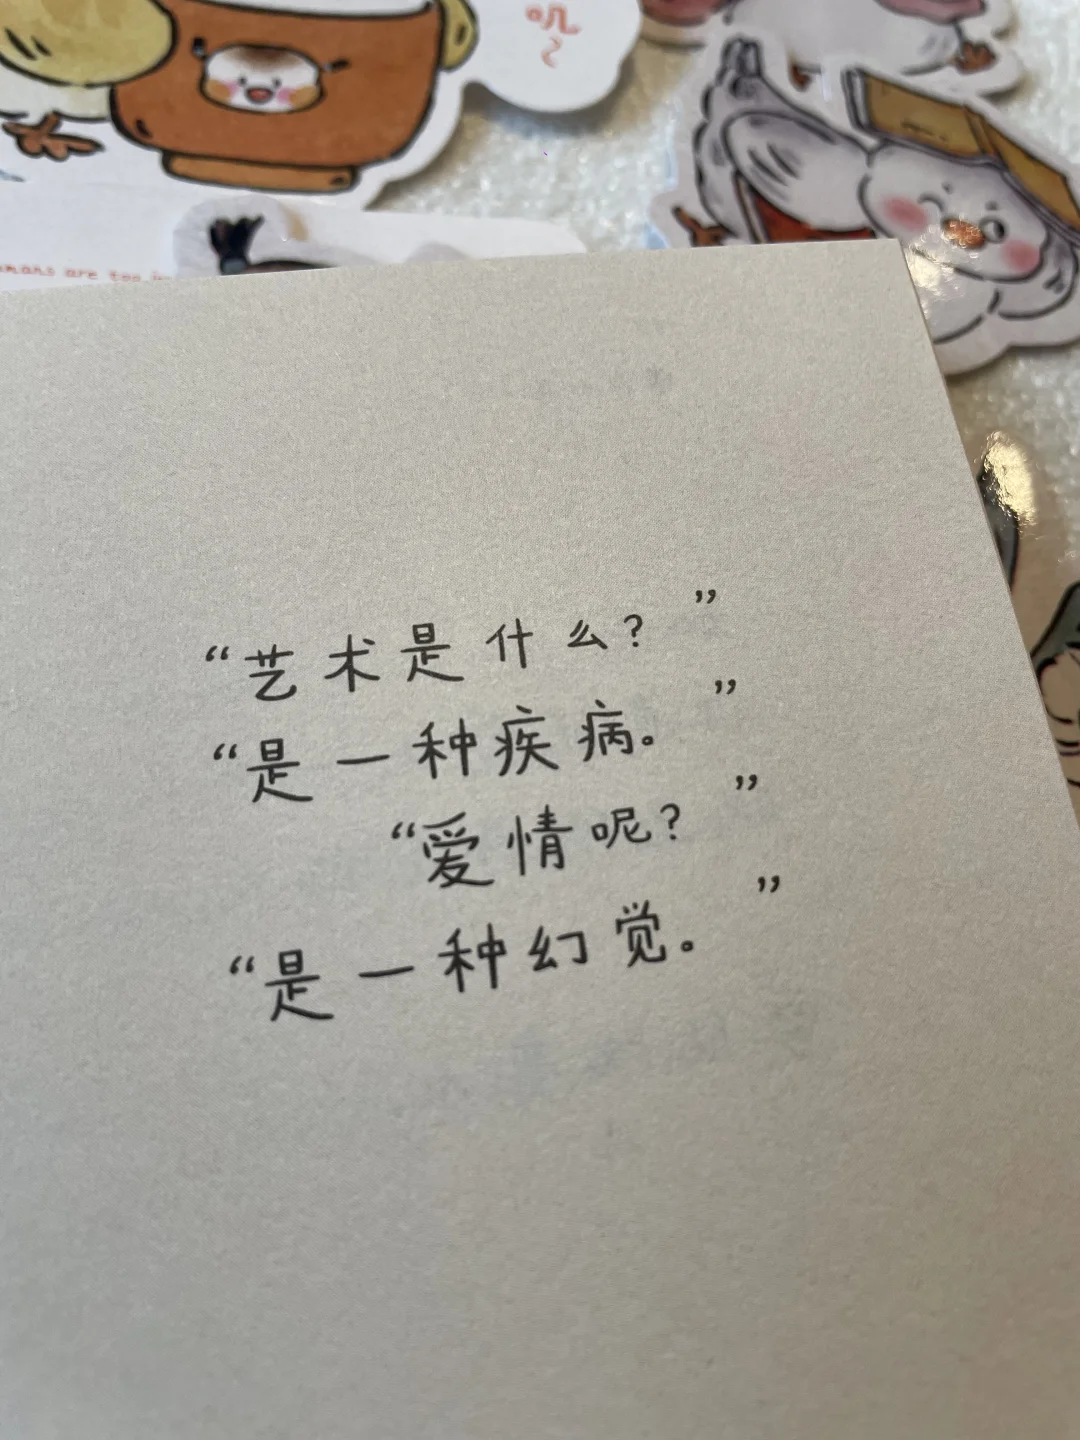 叽~
umans are too
“艺术是什么？”
“是一种疾病。”
“爱情呢？”
“是一种幻觉。”